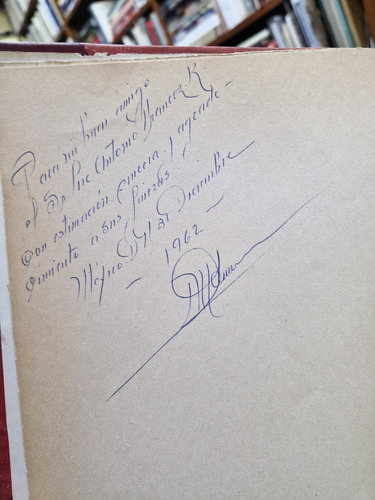 Para mi buen amigo
el Dr. Antonio K
con estimación sincera y agrade-
cimiento a sus finezas
México D.F. 31 Diciembre
— 1962 —